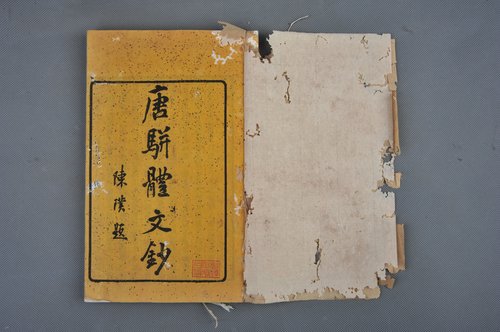 唐駢體文鈔
陳璞題